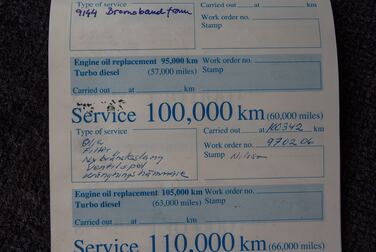 Type of service
9144 Bromsband fram
Work order no.
Stamp
Carried out at km
Engine oil replacement 95,000 km
Turbo diesel (57,000 miles)
Work order no.
Stamp
Carried out at km
Service 100,000 km (60,000 miles)
Type of service
Olja
Filter
Ny bränsleslang
Ventilspel
Carried out at km
Work order no. 970206
Stamp Nilsson
Engine oil replacement 105,000 km
Turbo diesel (63,000 miles)
Work order no.
Stamp
Carried out at km
Service 110,000 km (66,000 miles)